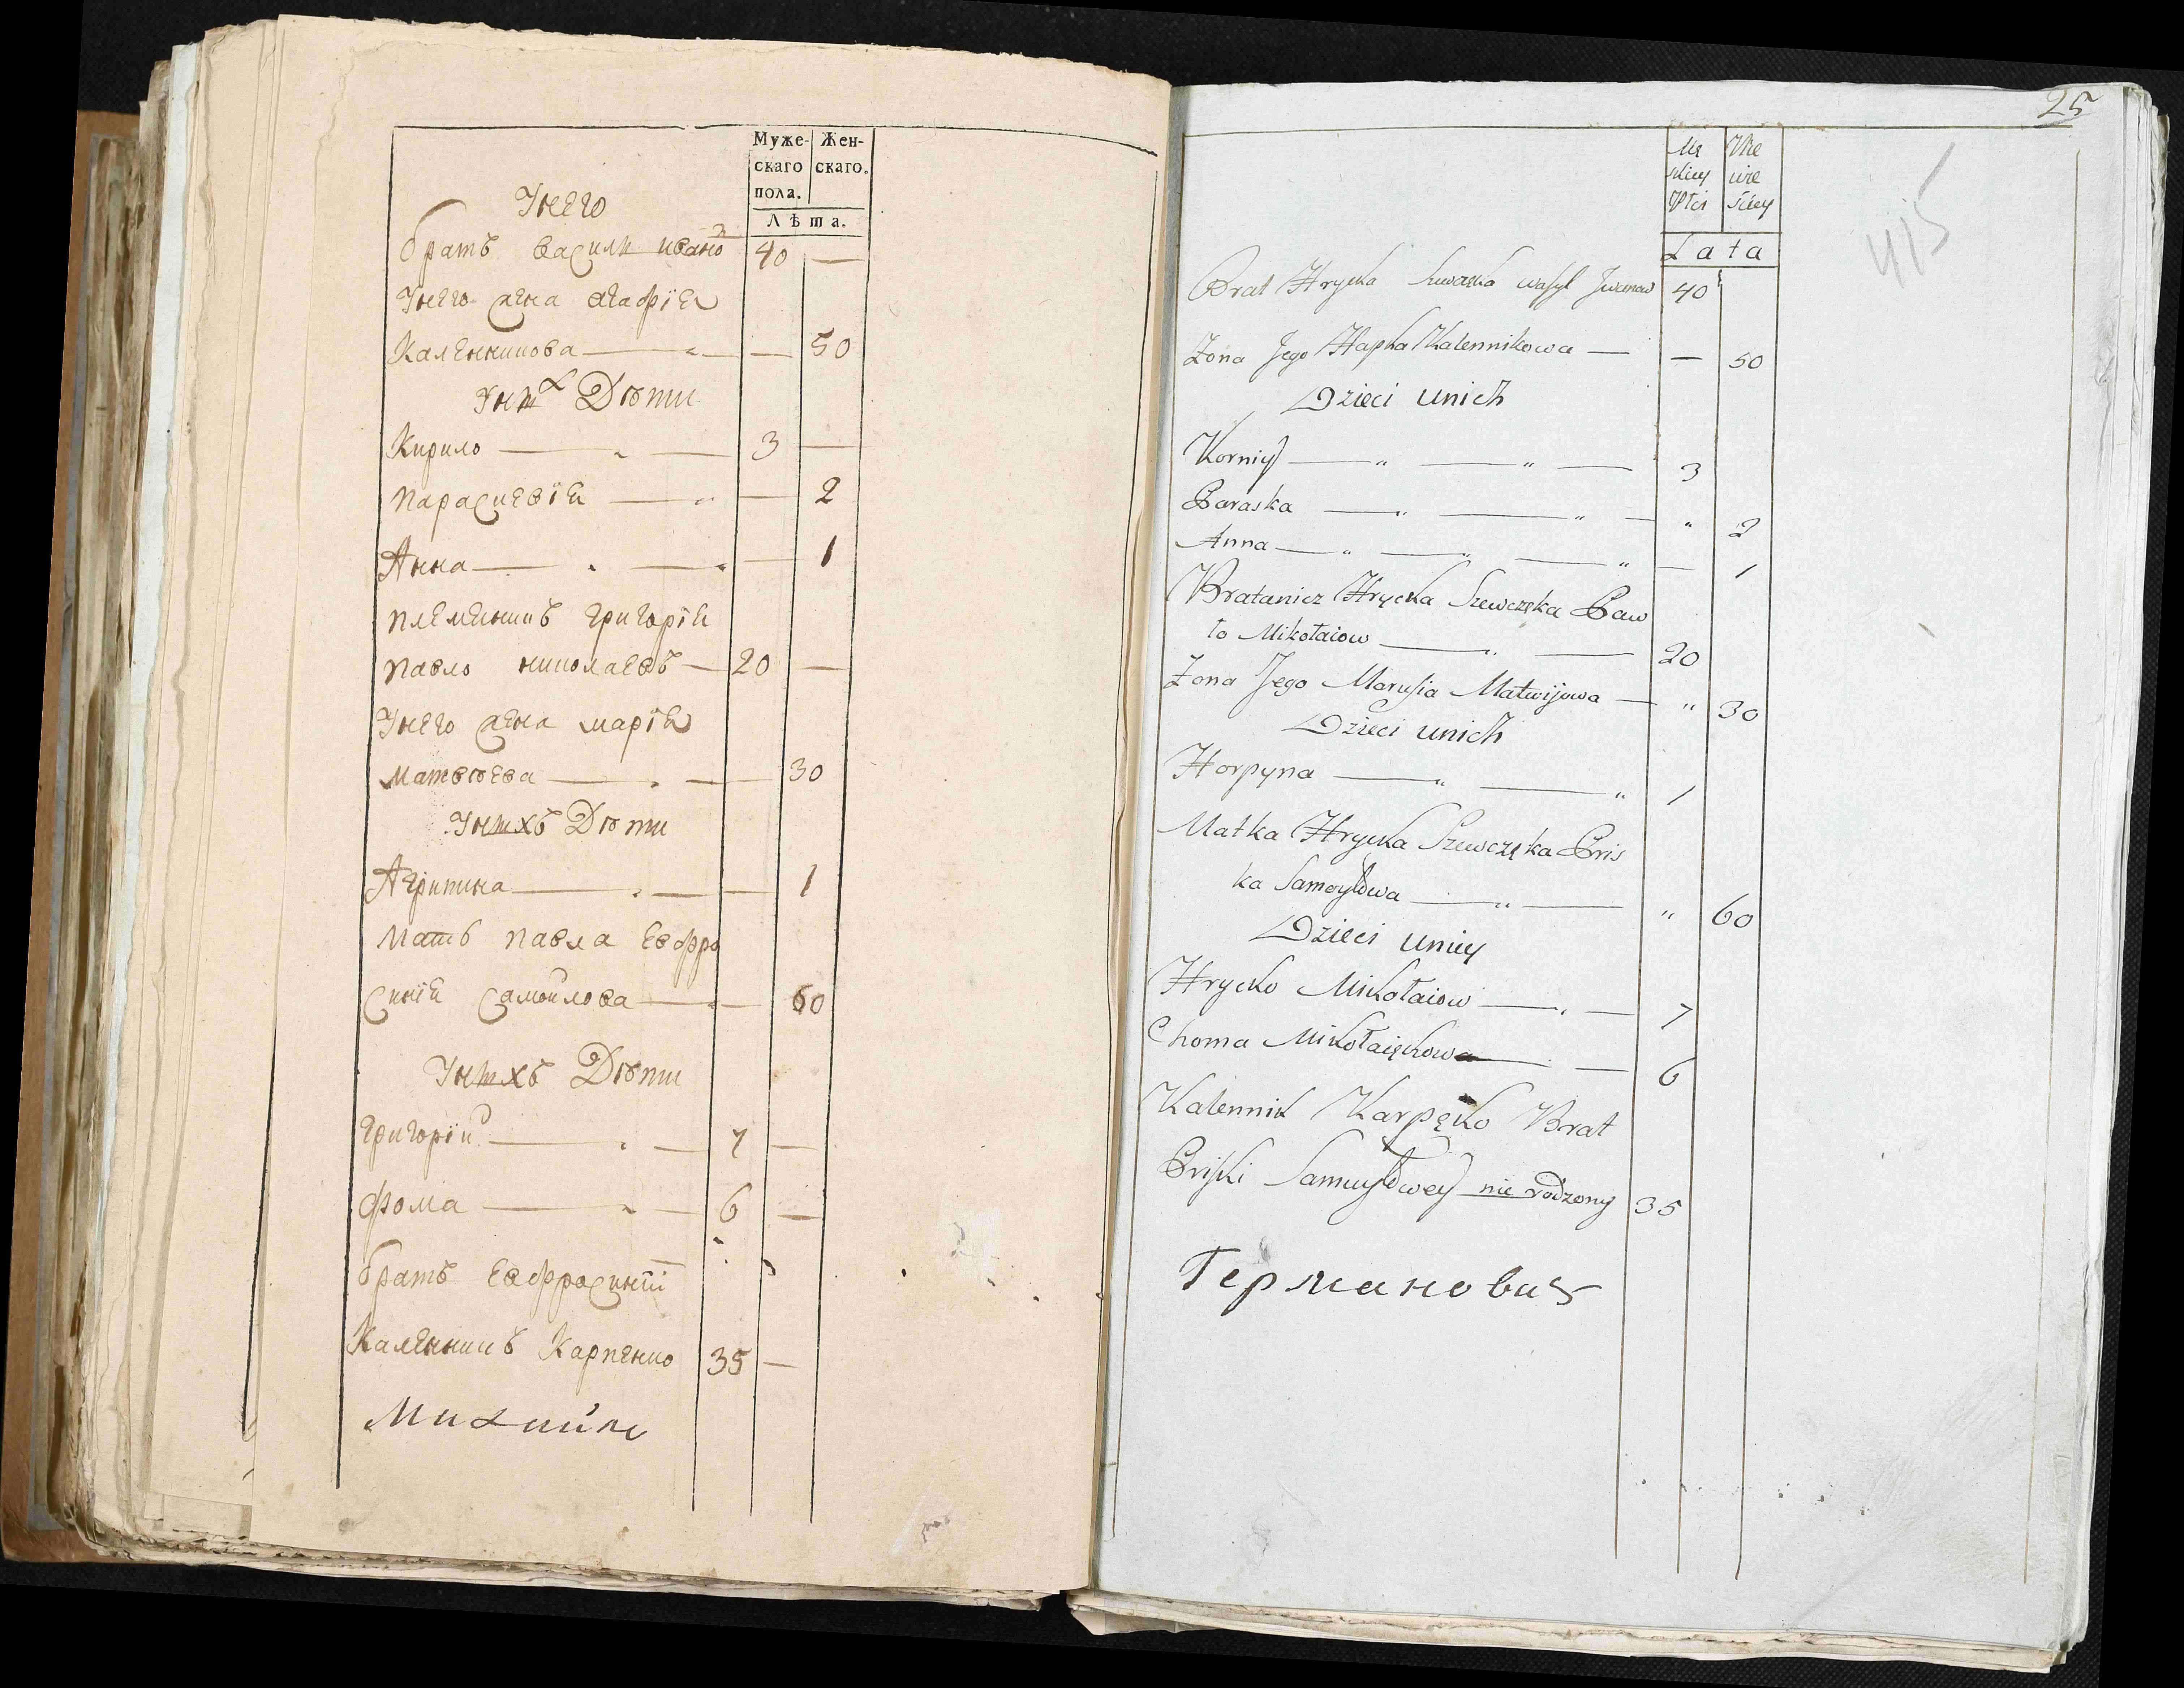 Муже- Жен-
скаго скаго.
пола.
Лѣта.
Унего
братъ василй ивано 40 —
Унего жена агафїя
Каленникова — — 50
Унихъ Дѣти
Кирило — 3 —
Параскевїя — — 2
Анна — — 1
племенникъ григорїя
павло николаевъ — 20 —
Унего жена марїя
Матвѣева — — 30
Унихъ Дѣти
Агрипина — — 1
Мать павла Евфро
синїя самойлова — — 60
Унихъ Дѣти
григорїй — 7 —
фома — 6 —
братъ Евфросинїи
Каленникъ Карпенко 35 —
25
415
Mę Że
skiey ńre
Płci skiey
Lata
Brat Hrycka Szewczęka Wasyl Jwanow 40
Zona Jego Hapka Kalennikowa — — 50
Dzieci unich
Korniy — " — " — 3
Paraska — " — " — " 2
Anna — " — " — " — 1
Bratanicz Hrycka Szewczęka Paw
ło Mikołaiow — " — 20
Zona Jego Marusia Matwijowa — " 30
Dzieci unich
Horpyna — " — " 1
Matka Hrycka Szewczęka Pris
ka Samoyłowa — " — " 60
Dzieci uniey
Hrycko Mikołaiow — 7
Choma Mikołaię — 6
Kalennik Karpęko Brat
Priski Samuyłowey nie rodzony 35
Германович